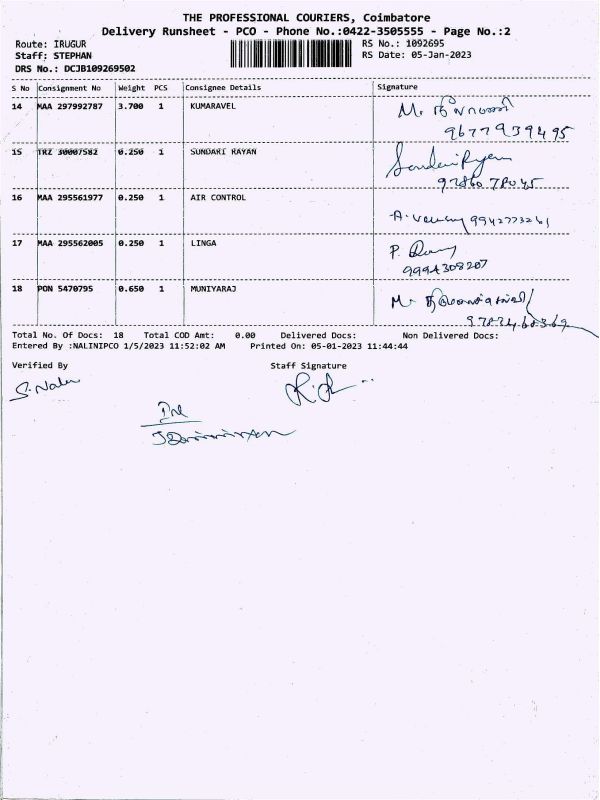 THE PROFESSIONAL COURIERS, Coimbatore
Delivery Runsheet - PCO - Phone No.:0422-3505555 - Page No.:2
Route: IRUGUR
RS No.: 1092695
Staff: STEPHAN
RS Date: 05-Jan-2023
DRS No.: DCJB109269502
S No Consignment No Weight PCS Consignee Details Signature
14 MAA 297992787 3.700 1 KUMARAVEL
9677939495
15 TRZ 30007582 0.250 1 SUNDARI RAYAN
16 MAA 295561977 0.250 1 AIR CONTROL
9942773261
17 MAA 295562005 0.250 1 LINGA
9994308207
18 PON 5470795 0.650 1 MUNIYARAJ
Total No. Of Docs: 18 Total COD Amt: 0.00 Delivered Docs: Non Delivered Docs:
Entered By :NALINIPCO 1/5/2023 11:52:02 AM Printed On: 05-01-2023 11:44:44
Verified By Staff Signature